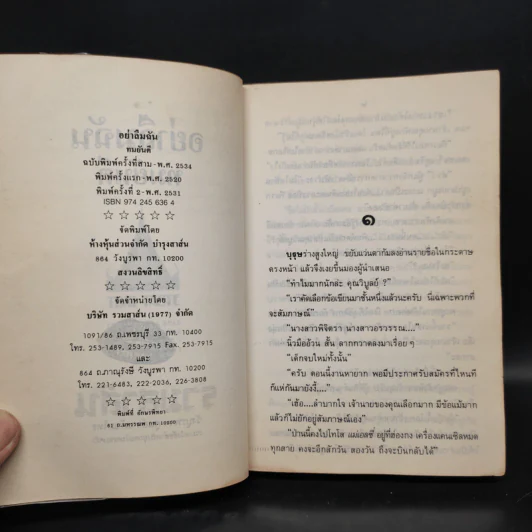 อย่าลืมฉัน
ทมยันตี
ฉบับพิมพ์ครั้งที่สาม-พ.ศ. 2534
พิมพ์ครั้งแรก-พ.ศ. 2520
พิมพ์ครั้งที่ 2-พ.ศ. 2531
ISBN 974 245 636 4
☆ ☆ ☆ ☆ ☆
จัดพิมพ์โดย
ห้างหุ้นส่วนจำกัด บำรุงสาส์น
864 วังบูรพา กท. 10200
สงวนลิขสิทธิ์
☆ ☆ ☆ ☆ ☆
จัดจำหน่ายโดย
บริษัท รวมสาส์น (1977) จำกัด
1091/86 ถ.เพชรบุรี 33 กท. 10400
โทร. 253-1489, 253-7915 Fax. 253-7915
และ
864 ถ.ภาณุรังษี วังบูรพา กท. 10200
โทร. 221-6483, 222-2036, 226-3808
☆ ☆ ☆ ☆ ☆
พิมพ์ที่ อักษรพิทยา
41 ถ.มหรรณพ กท. 10200
๑
บุรุษร่างสูงใหญ่ ขยับแว่นตาก้มลงอ่านรายชื่อในกระดาษ
ตรงหน้า แล้วจึงเงยขึ้นมองผู้นำเสนอ
“ทำไมมากนักล่ะ คุณวิบูลย์ ?”
“เราคัดเลือกข้อเขียนมาชั้นหนึ่งแล้วนะครับ นี่เฉพาะพวกที่
จะสัมภาษณ์”
“นางสาวพิจิตรา นางสาวอรวรรณ....”
นิ้วมืออ้วน สั้น ลากกวาดลงมาเรื่อย ๆ
“เด็กจบใหม่ทั้งนั้น”
“ครับ ตอนนี้งานหายาก พอมีประกาศรับสมัครที่ไหนที
ก็แห่กันมายังงี้....”
“เฮ้อ....ลำบากใจ เจ้านายของคุณเลือกมาก มีข้อแม้มาก
แล้วก็ไม่ยักอยู่สัมภาษณ์เอง”
“ป่านนี้คงไปไทโส แม่เอลซี่ อยู่ที่ฮ่องกง เครื่องแคนเซิลหมด
ทุกสาย คงจะอีกสักวัน สองวัน ถึงจะบินกลับได้”